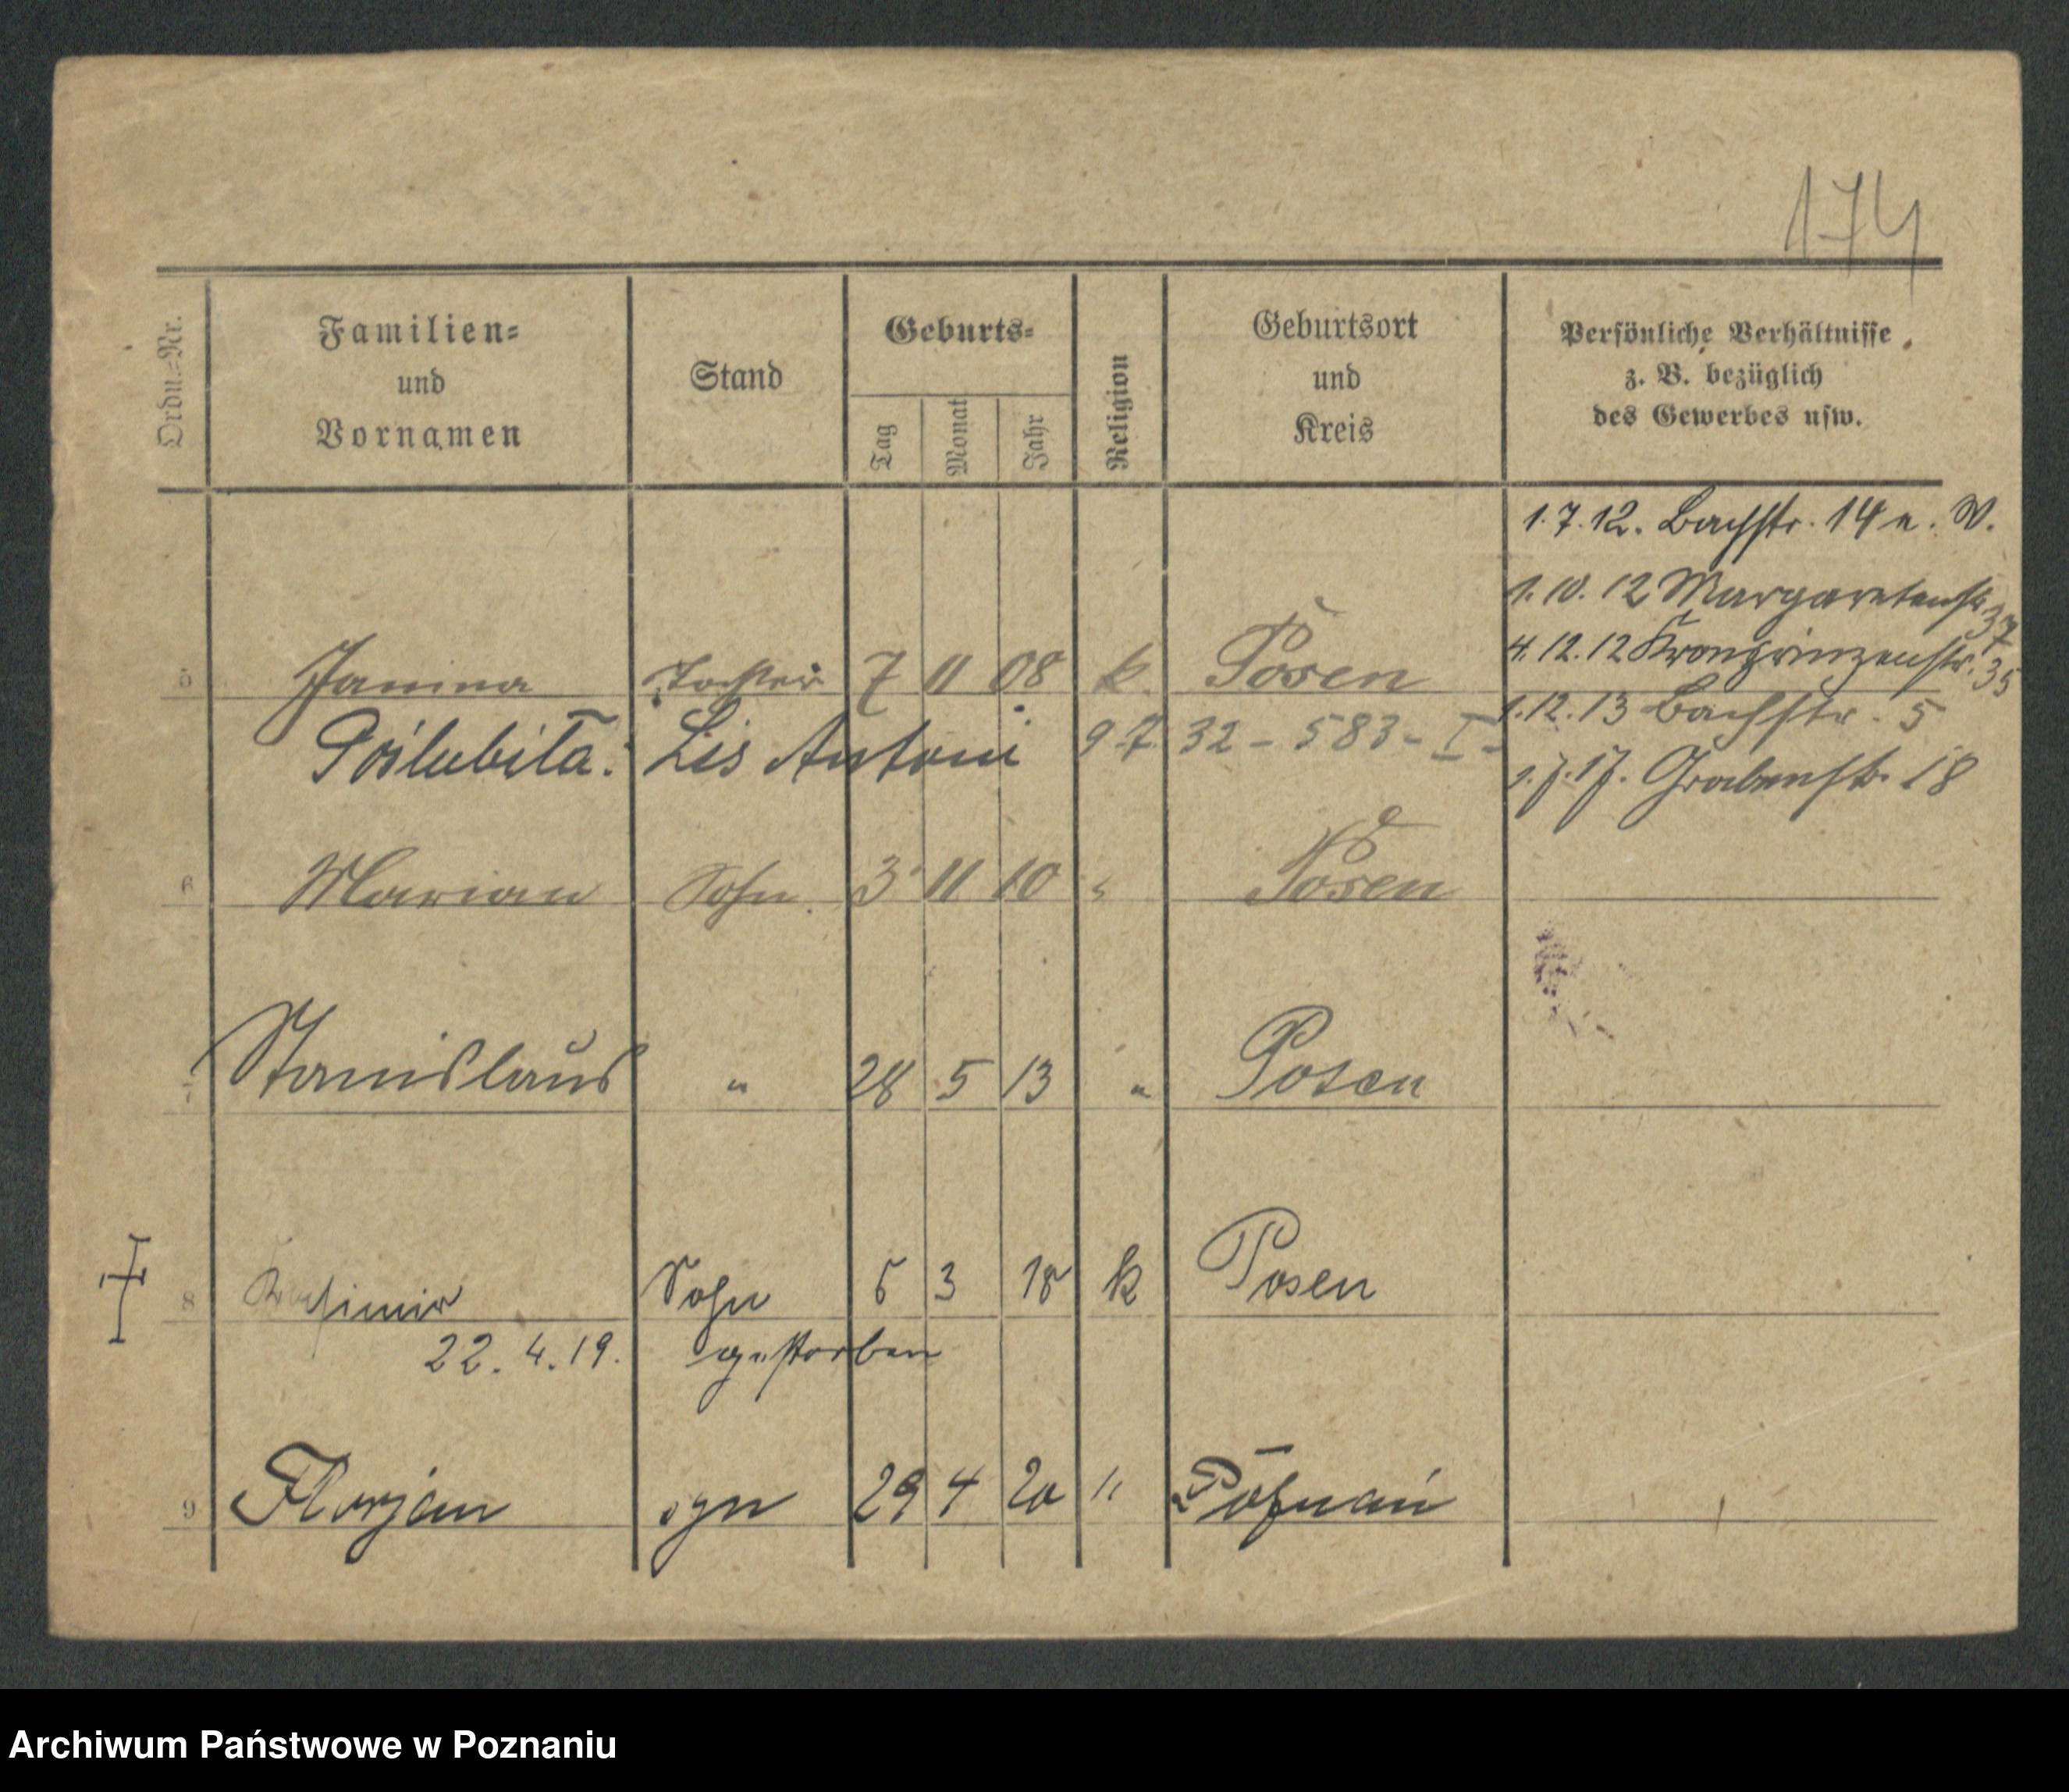 174
Ordn.=Nr.
Familien=
und
Vornamen
Stand
Geburts=
Tag
Monat
Jahr
Religion
Geburtsort
und
Kreis
Persönliche Verhältnisse
z. B. bezüglich
des Gewerbes usw.
1.7.12. Bachstr. 14 W.
1.10.12 Margaretenstr. 37
4.12.12 Kronprinzenstr. 35
5 Janina Tochter 7 11 08 k. Posen
1.12.13 Bachstr. 5
Poślubiła: Lis Antoni 9.7.32 - 583 - I -
1.7.17. Grabenstr. 18
6 Marian Sohn 3 11 10 " Posen
7 Stanislaus " 28 5 13 " Posen
8 Kasimir Sohn 5 3 18 k Posen
22.4.19. gestorben
9 Florjan syn 29 4 20 " Poznań
Archiwum Państwowe w Poznaniu